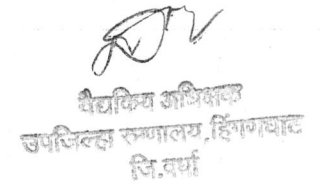 वैद्यकिय अधिक्षक
उपजिल्हा रुग्णालय, हिंगणघाट
जि.वर्धा